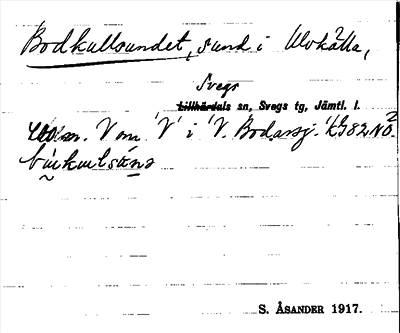 Bodkullsundet, sund i Ulvkälla,
Svegs
Lillhärdals sn, Svegs tg, Jämtl. l.
400 m. V om 'V' i 'V. Bodarsj.' kG82NO.2
S. ÅSANDER 1917.